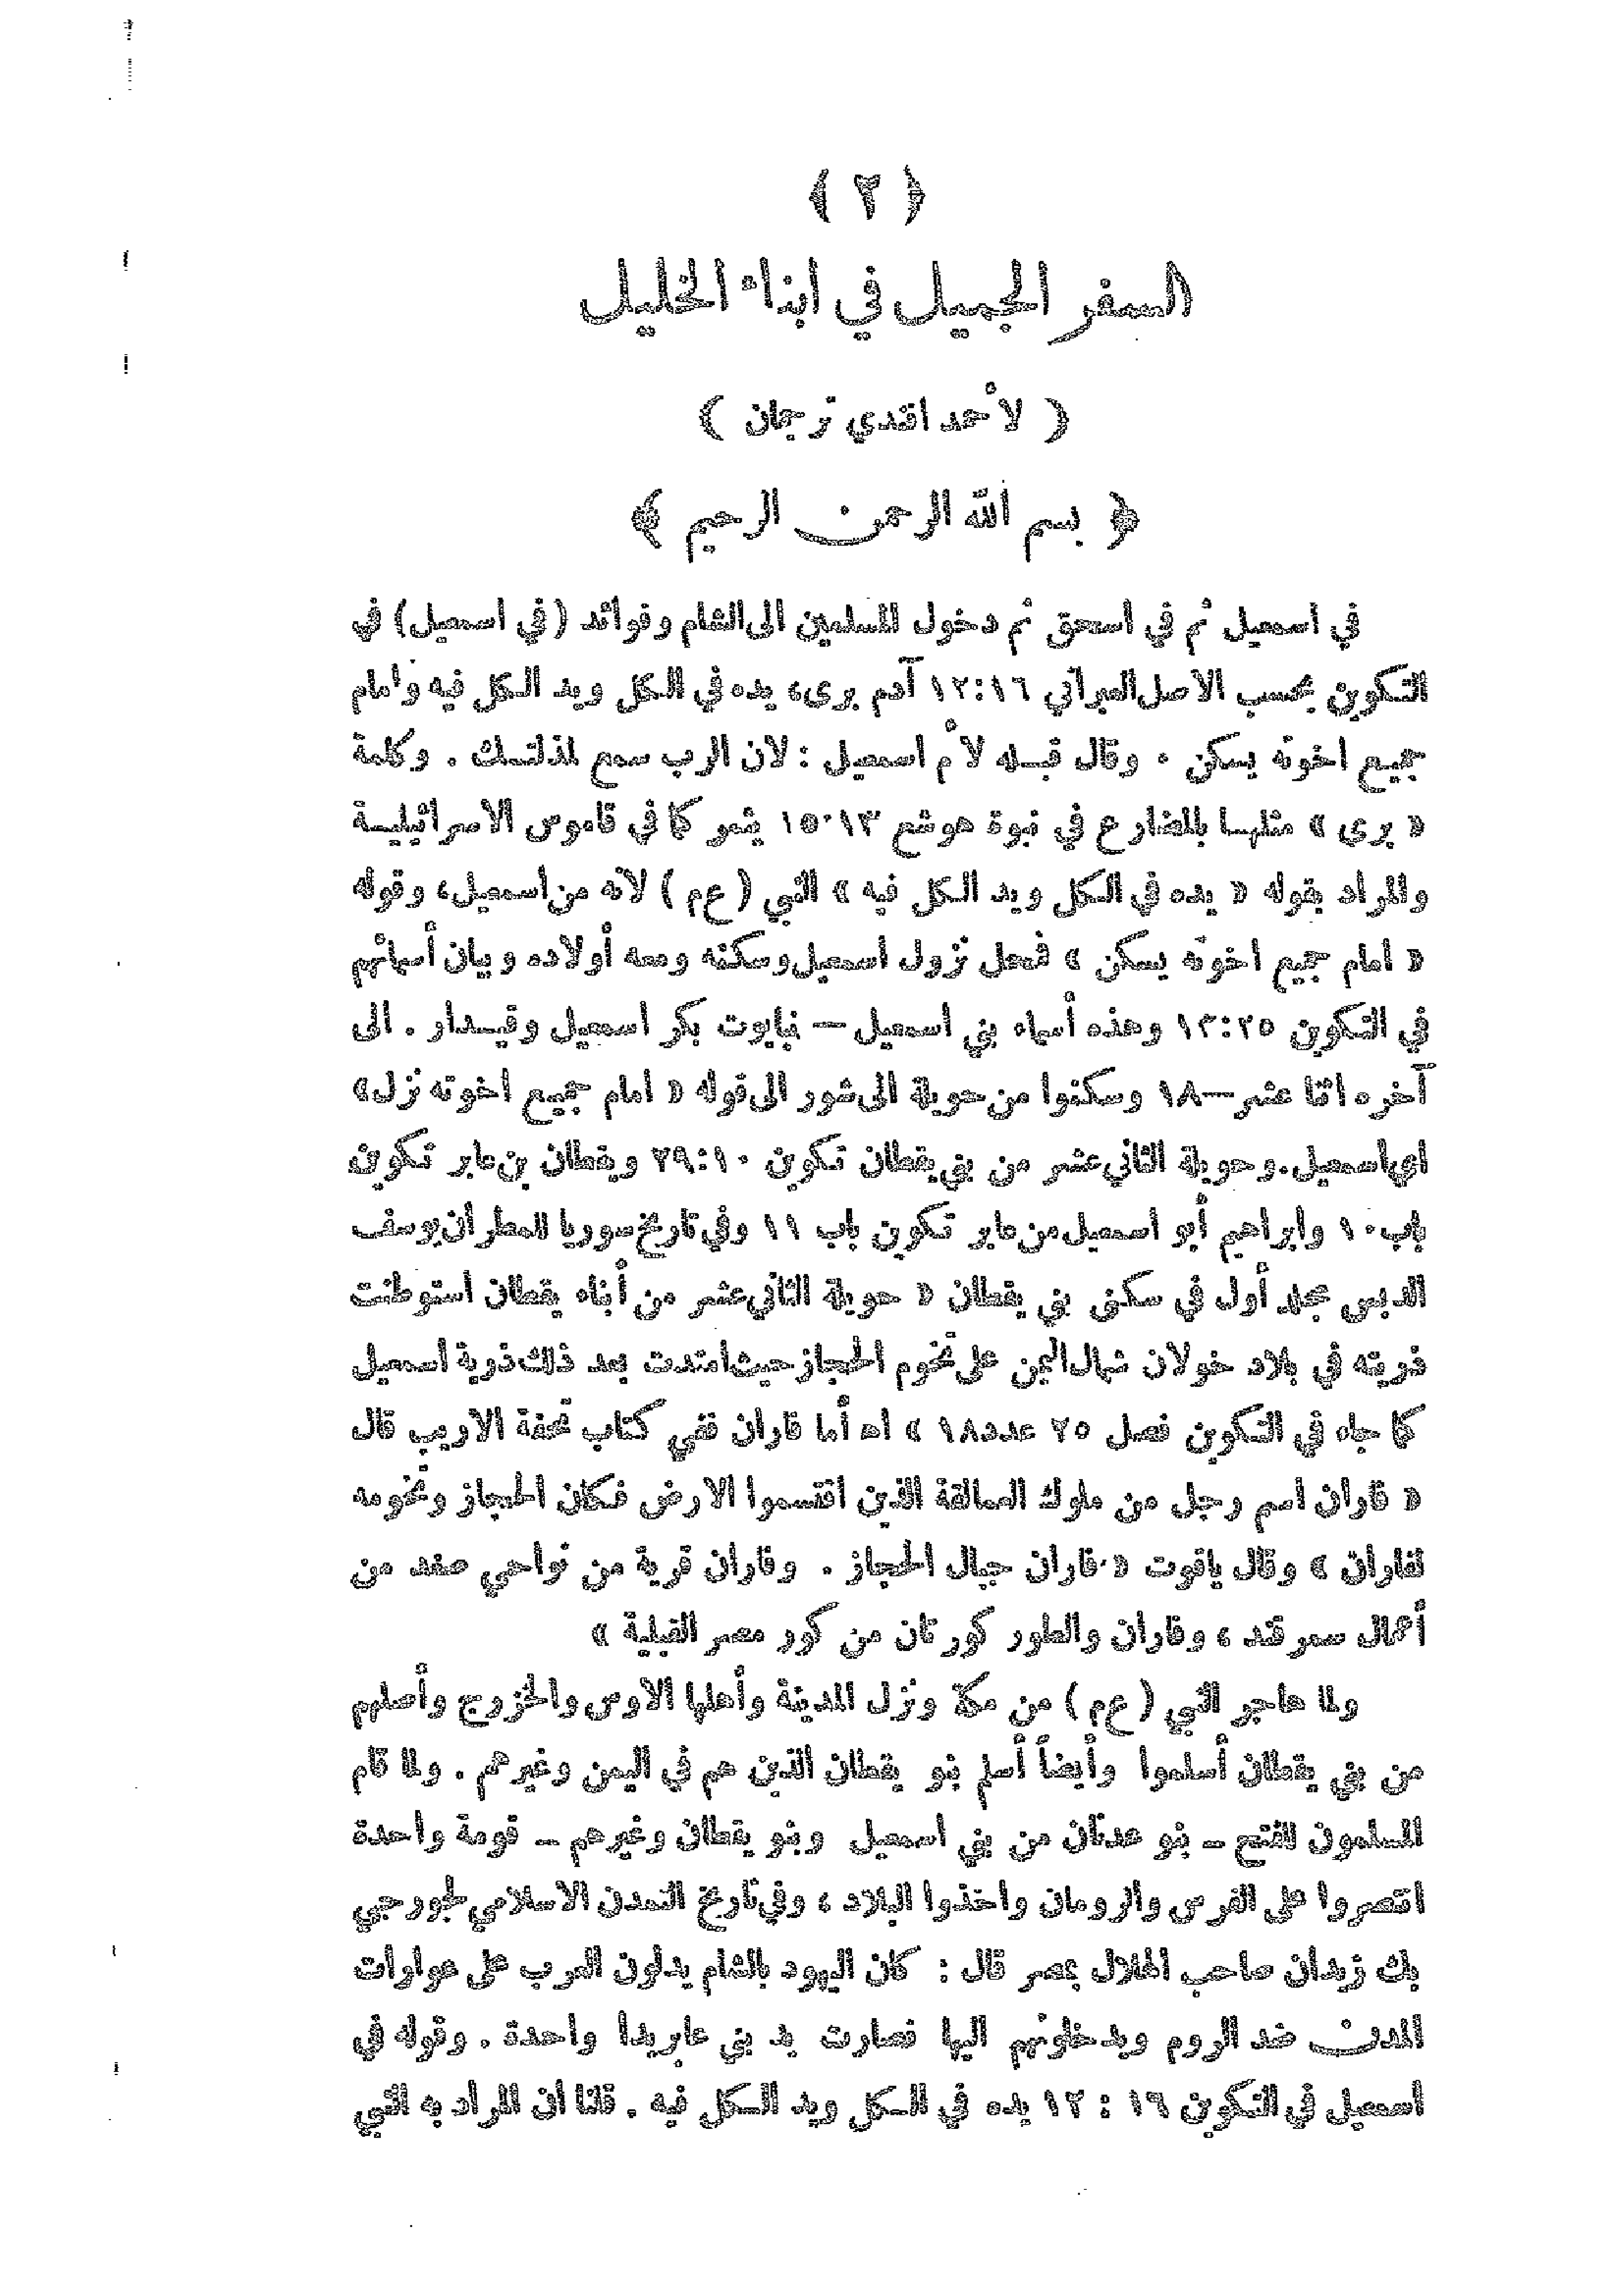 ﴿ ٢ ﴾
السفر الجميل في ابناء الخليل
( لأحمد افندي ترجمان )
﴿ بسم الله الرحمن الرحيم ﴾
في اسمعيل ثم في اسحق ثم دخول المسلمين الى الشام وفوائد (في اسمعيل) في
التكوين بحسب الاصل العبراني ١٢:١٦ آدم برىء يده في الكل ويد الكل فيه وامام
جميع اخوته يسكن . وقال قبله لأم اسمعيل : لان الرب سمع لمذلتك . وكلمة
« برى » مثلها بالمضارع في نبوة هوشع ١٥:١٣ يثمر كما في قاموس الاسرائيلية
والمراد بقوله « يده في الكل ويد الكل فيه » النبي ( ع م ) لانه من اسمعيل، وقوله
« امام جميع اخوته يسكن » فمحل نزول اسمعيل وسكنه ومعه أولاده وبيان أسمائهم
في التكوين ١٣:٢٥ وهذه أسماء بني اسمعيل — نبايوت بكر اسمعيل وقيدار . الى
آخره اثنا عشر — ١٨ وسكنوا من حويلة الى شور الى قوله « امام جميع اخوته نزل»
اي اسمعيل. وحويلة الثاني عشر من بني يقطان تكوين ٢٩:١٠ ويقطان بن عابر تكوين
باب ١٠ وابراهيم أبو اسمعيل من عابر تكوين باب ١١ وفي تاريخ سوريا للمطران يوسف
الدبس مجلد أول في سكنى بني يقطان « حويلة الثاني عشر من أبناء يقطان استوطنت
ذريته في بلاد خولان شمال اليمن على تخوم الحجاز حيث امتدت بعد ذلك ذرية اسمعيل
كما جاء في التكوين فصل ٢٥ عدد ١٨ » اه أما فاران ففي كتاب تحفة الاريب قال
« فاران اسم رجل من ملوك العمالقة الذين اقتسموا الارض فكان الحجاز وتخومه
لفاران » وقال ياقوت « فاران جبال الحجاز . وفاران قرية من نواحي صغد من
أعمال سمرقند ، وفاران والطور كورتان من كور مصر القبلية »
ولما هاجر النبي ( ع م ) من مكة ونزل المدينة وأهلها الاوس والخزرج وأصلهم
من بني يقطان أسلموا وأيضاً أسلم بنو يقطان الذين هم في اليمن وغيرهم . ولما قام
المسلمون للفتح — بنو عدنان من بني اسمعيل وبنو يقطان وغيرهم — قومة واحدة
انتصروا على الفرس والرومان واخذوا البلاد ، وفي تاريخ التمدن الاسلامي لجورجي
بك زيدان صاحب الهلال بمصر قال : كان اليهود بالشام يدلون العرب على عوارات
المدن ضد الروم ويدخلونهم اليها فصارت يد بني عابر يدا واحدة . وقوله في
اسمعيل في التكوين ١٦ : ١٢ يده في الكل ويد الكل فيه . قلنا ان المراد به النبي